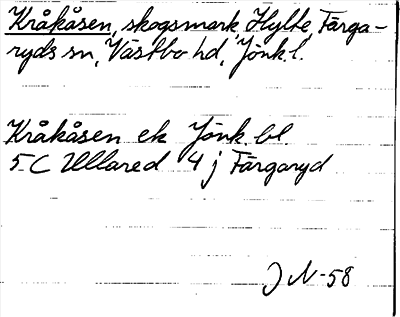 Kråkåsen, skogsmark, Hylte, Färga-
ryds sn, Västbo hd, Jönk. l.
Kråkåsen ek Jönk. bl.
5 C Ullared 4 j Färgaryd
J N -58